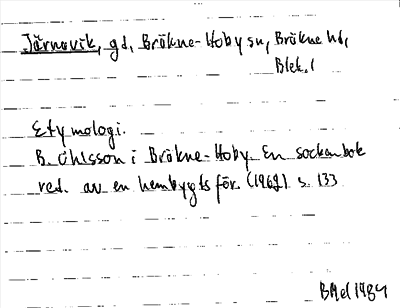 Järnavik, gd, Bräkne-Hoby sn, Bräkne hd,
Blek.
Etymologi.
B. Ohlsson i Bräkne-Hoby. En sockenbok
red. av en hembygdsför. (1962) s. 133
1984